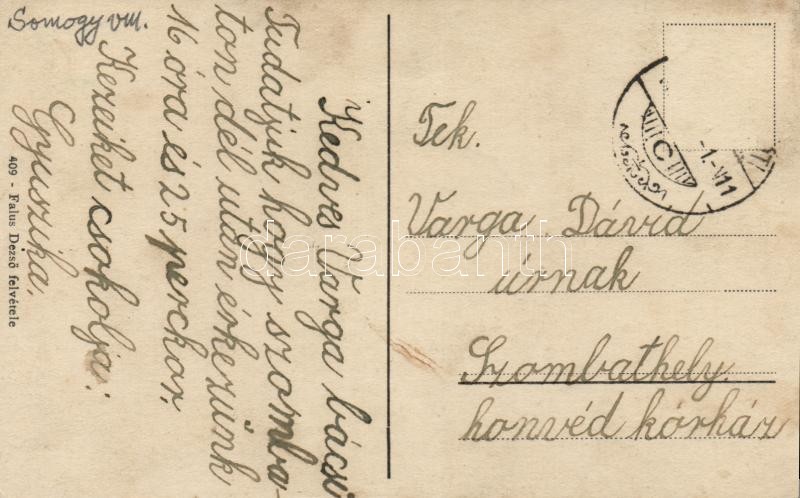 Somogy vm.
Kedves Varga bácsi
Tudatjuk hogy szomba-
ton dél után érkezünk
16 óra és 25 perckor,
Kezeiket csokolja:
Gyuszika.
409 - Falus Dezső felvétele
Tek.
Varga Dávid
úrnak
Szombathely.
honvéd kórház
darabanth